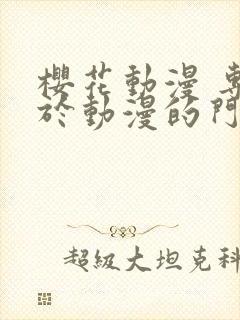 櫻花動漫 專
於動漫的門
超級大坦克科